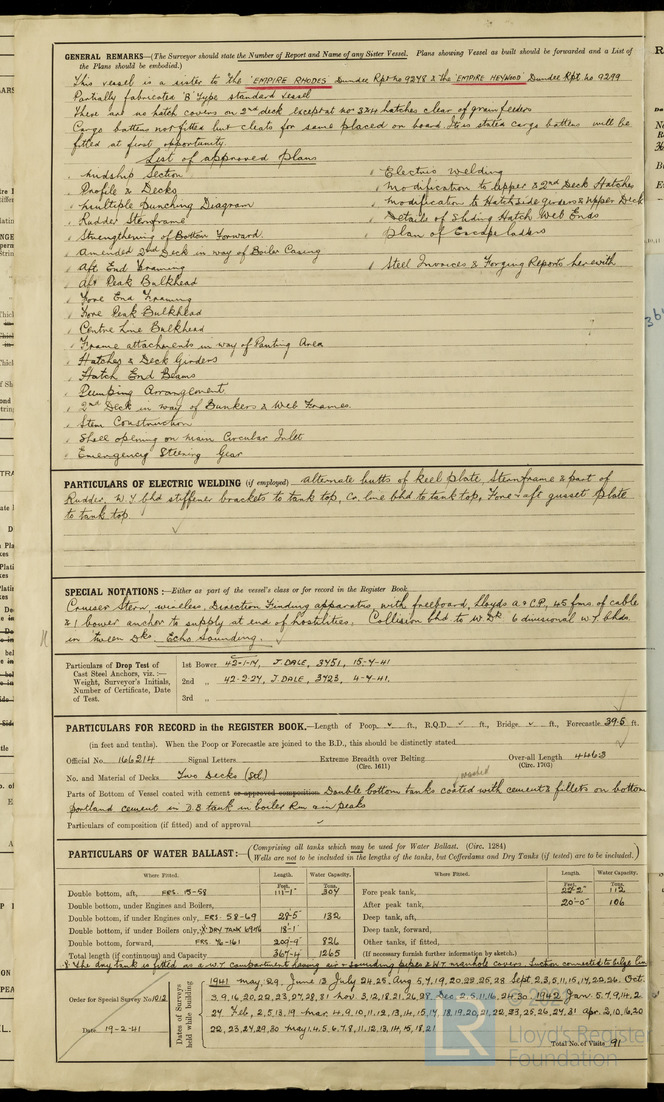 GENERAL REMARKS—(The Surveyor should state the Number of Report and Name of any Sister Vessel. Plans showing Vessel as built should be forwarded and a List of
the Plans should be embodied.)
This vessel is a sister to the 'EMPIRE RHODES' Dundee Rpt No 9248 & the 'EMPIRE HEYWOOD' Dundee Rpt No 9299
Partially fabricated 'B' Type standard vessel
There are no hatch covers on 2nd deck except at nos 3&4 hatches clear of grain feeders
Cargo battens not fitted but cleats for same placed on board. It is stated cargo battens will be
fitted at first opportunity.
List of approved plans
Midship Section
Profile & Decks
Multiple Punching Diagram
Rudder Sternframe
Strengthening of Bottom Forward.
Amended 2nd Deck in way of Boiler Casing
Aft End Framing
Aft Peak Bulkhead
Fore End Framing
Fore Peak Bulkhead
Centre Line Bulkhead
Frame attachments in way of Panting Area
Hatches & Deck Girders
Hatch End Beams
Pumping Arrangement
2nd Deck in way of Bunkers & Web Frames.
Stem Construction
Shell opening on main Circular Inlet
Emergency Steering Gear
Electric Welding
Modification to Upper & 2nd Deck Hatches
Modification to Hatchside girders & Upper Deck
Details of Sliding Hatch Web Ends
Plan of Escape ladders
Steel Invoices & Forging Reports herewith
PARTICULARS OF ELECTRIC WELDING (if employed) Alternate butts of keel plate, Sternframe & part of
Rudder, W.T bhd stiffener brackets to tank top, Cr. line bhd to tank top, Fore & aft gusset plate
to tank top
SPECIAL NOTATIONS:—Either as part of the vessel's class or for record in the Register Book
Cruiser Stern, wireless, Direction Finding apparatus, with freeboard, Lloyds A & CP, 45 fms. of cable
& 1 bower anchor to supply at end of hostilities. Collision bhd to U Dk 6 divisional W T bhds.
in 'tween Dks. Echo Sounding.
Particulars of Drop Test of
Cast Steel Anchors, viz.:—
Weight, Surveyor's Initials,
Number of Certificate, Date
of Test.
1st Bower 42-1-14, J. DALE, 3751, 15-4-41
2nd „ 42-2-24, J. DALE, 3723, 4-4-41.
3rd „
PARTICULARS FOR RECORD in the REGISTER BOOK.—Length of Poop ft., R.Q.D. ft., Bridge ft., Forecastle 39.5 ft.
(in feet and tenths). When the Poop or Forecastle are joined to the B.D., this should be distinctly stated
Official No. 166214 Signal Letters Extreme Breadth over Belting (Circ. 1611) Over-all Length 446.3 (Circ. 1703)
No. and Material of Decks Two Decks (Stl)
Parts of Bottom of Vessel coated with cement or approved composition Double bottom tanks coated with cement & fillets on bottom
washed
portland cement in D.B tank in boiler Rm & in peaks
Particulars of composition (if fitted) and of approval
PARTICULARS OF WATER BALLAST:—(Comprising all tanks which may be used for Water Ballast. (Circ. 1284)
Wells are not to be included in the lengths of the tanks, but Cofferdams and Dry Tanks (if tested) are to be included.)
Where Fitted. Length. Water Capacity. Where Fitted. Length. Water Capacity.
Feet. Tons. Feet. Tons.
Double bottom, aft, FRS. 15-58 111-1" 307 Fore peak tank, 22-2" 112
Double bottom, under Engines and Boilers, After peak tank, 20-0" 106
Double bottom, if under Engines only, FRS. 58-69 28-5" 132 Deep tank, aft,
Double bottom, if under Boilers only, DRY TANK 69-76 18-1" Deep tank, forward,
Double bottom, forward, FRS 76-161 209-9" 826 Other tanks, if fitted,
Total length (if continuous) and Capacity 367-4" 1265 (If necessary furnish further information by sketch.)
The dry tank is fitted as a W.T. compartment having air & sounding pipes & W.T manhole covers. Suction connected to bilge line
Order for Special Survey No. 1012
Date 19-2-41
Dates of Surveys held while building
1941 May, 29. June 13 July 24.25. Aug 5,7,19,20,22,25,28 Sept. 2,3,5,11,15,17,22,26. Oct.
3,9,16,20,22,23,27,28,31 Nov. 3,12,18,21,26,28 Dec. 2,5,11,16,24,30. 1942 Jan. 5,7,9,14,2
27 Feb, 2,5,13,19 Mar. 4,9,10,11,12,13,14,15,17,18,19,20,21,22,23,25,26,27,31 Apr. 2,10,16,20
22,23,27,29,30 May 1,4,5,6,7,8,11,12,13,14,15,18,21
Total No. of Visits 91
LR
Lloyd's Register
Foundation